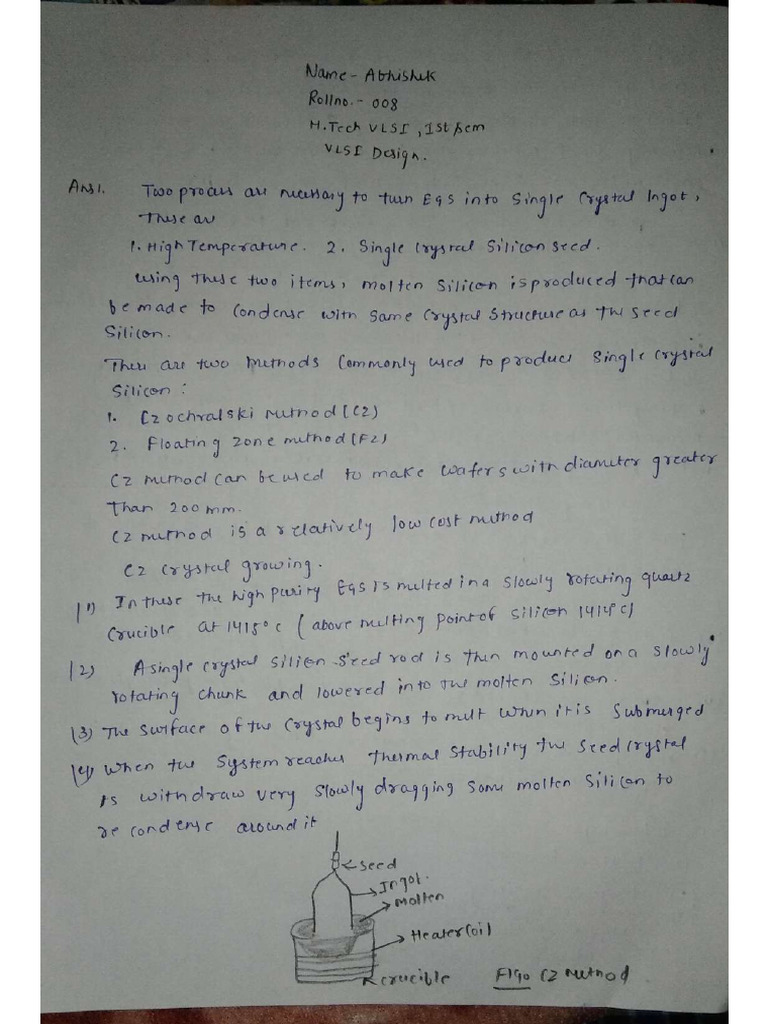 Name - Abhishek
Rollno. - 008
M.Tech VLSI, Ist sem
VLSI Design.
Ans1. Two process are necessary to turn EGS into Single Crystal Ingot,
These are
1. High Temperature. 2. Single Crystal Silicon seed.
using These two items, molten Silicon is produced that can
be made to Condense with same Crystal Structure as the seed
Silicon.
There are two methods Commonly used to produce Single Crystal
Silicon :
1. Czochralski Method (CZ)
2. Floating Zone method (FZ)
CZ method can be used to make wafers with diameter greater
Than 200 mm.
CZ method is a relatively low cost method
CZ crystal growing.
(1) In these the high purity EGS is melted in a slowly rotating quartz
Crucible at 1415°C (above melting point of silicon 1414°C)
(2) A single crystal silicon seed rod is then mounted on a slowly
rotating chunk and lowered into the molten Silicon.
(3) The surface of the Crystal begins to melt when it is submerged
(4) When the system reaches thermal stability the seed crystal
is withdraw very slowly dragging some molten silicon to
recondense around it
seed
Ingot.
molten
Heater Coil
crucible
Fig. CZ Method